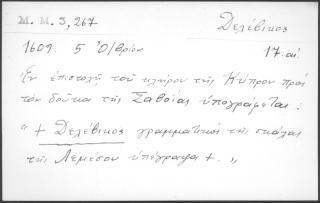 Μ. Μ. 3, 267 Δελέβικος
1609. 5 Ὀ/βρίου 17. αἰ.
Ἐν ἐπιστολῇ τοῦ κλήρου τῆς Κύπρου πρὸς
τὸν δοῦκα τῆς Σαβοΐας ὑπογράφεται:
"+ Δελέβικος γραμματικὸς τῆς σκάλας
τῆς Λεμέσου ὑπέγραψα +. „